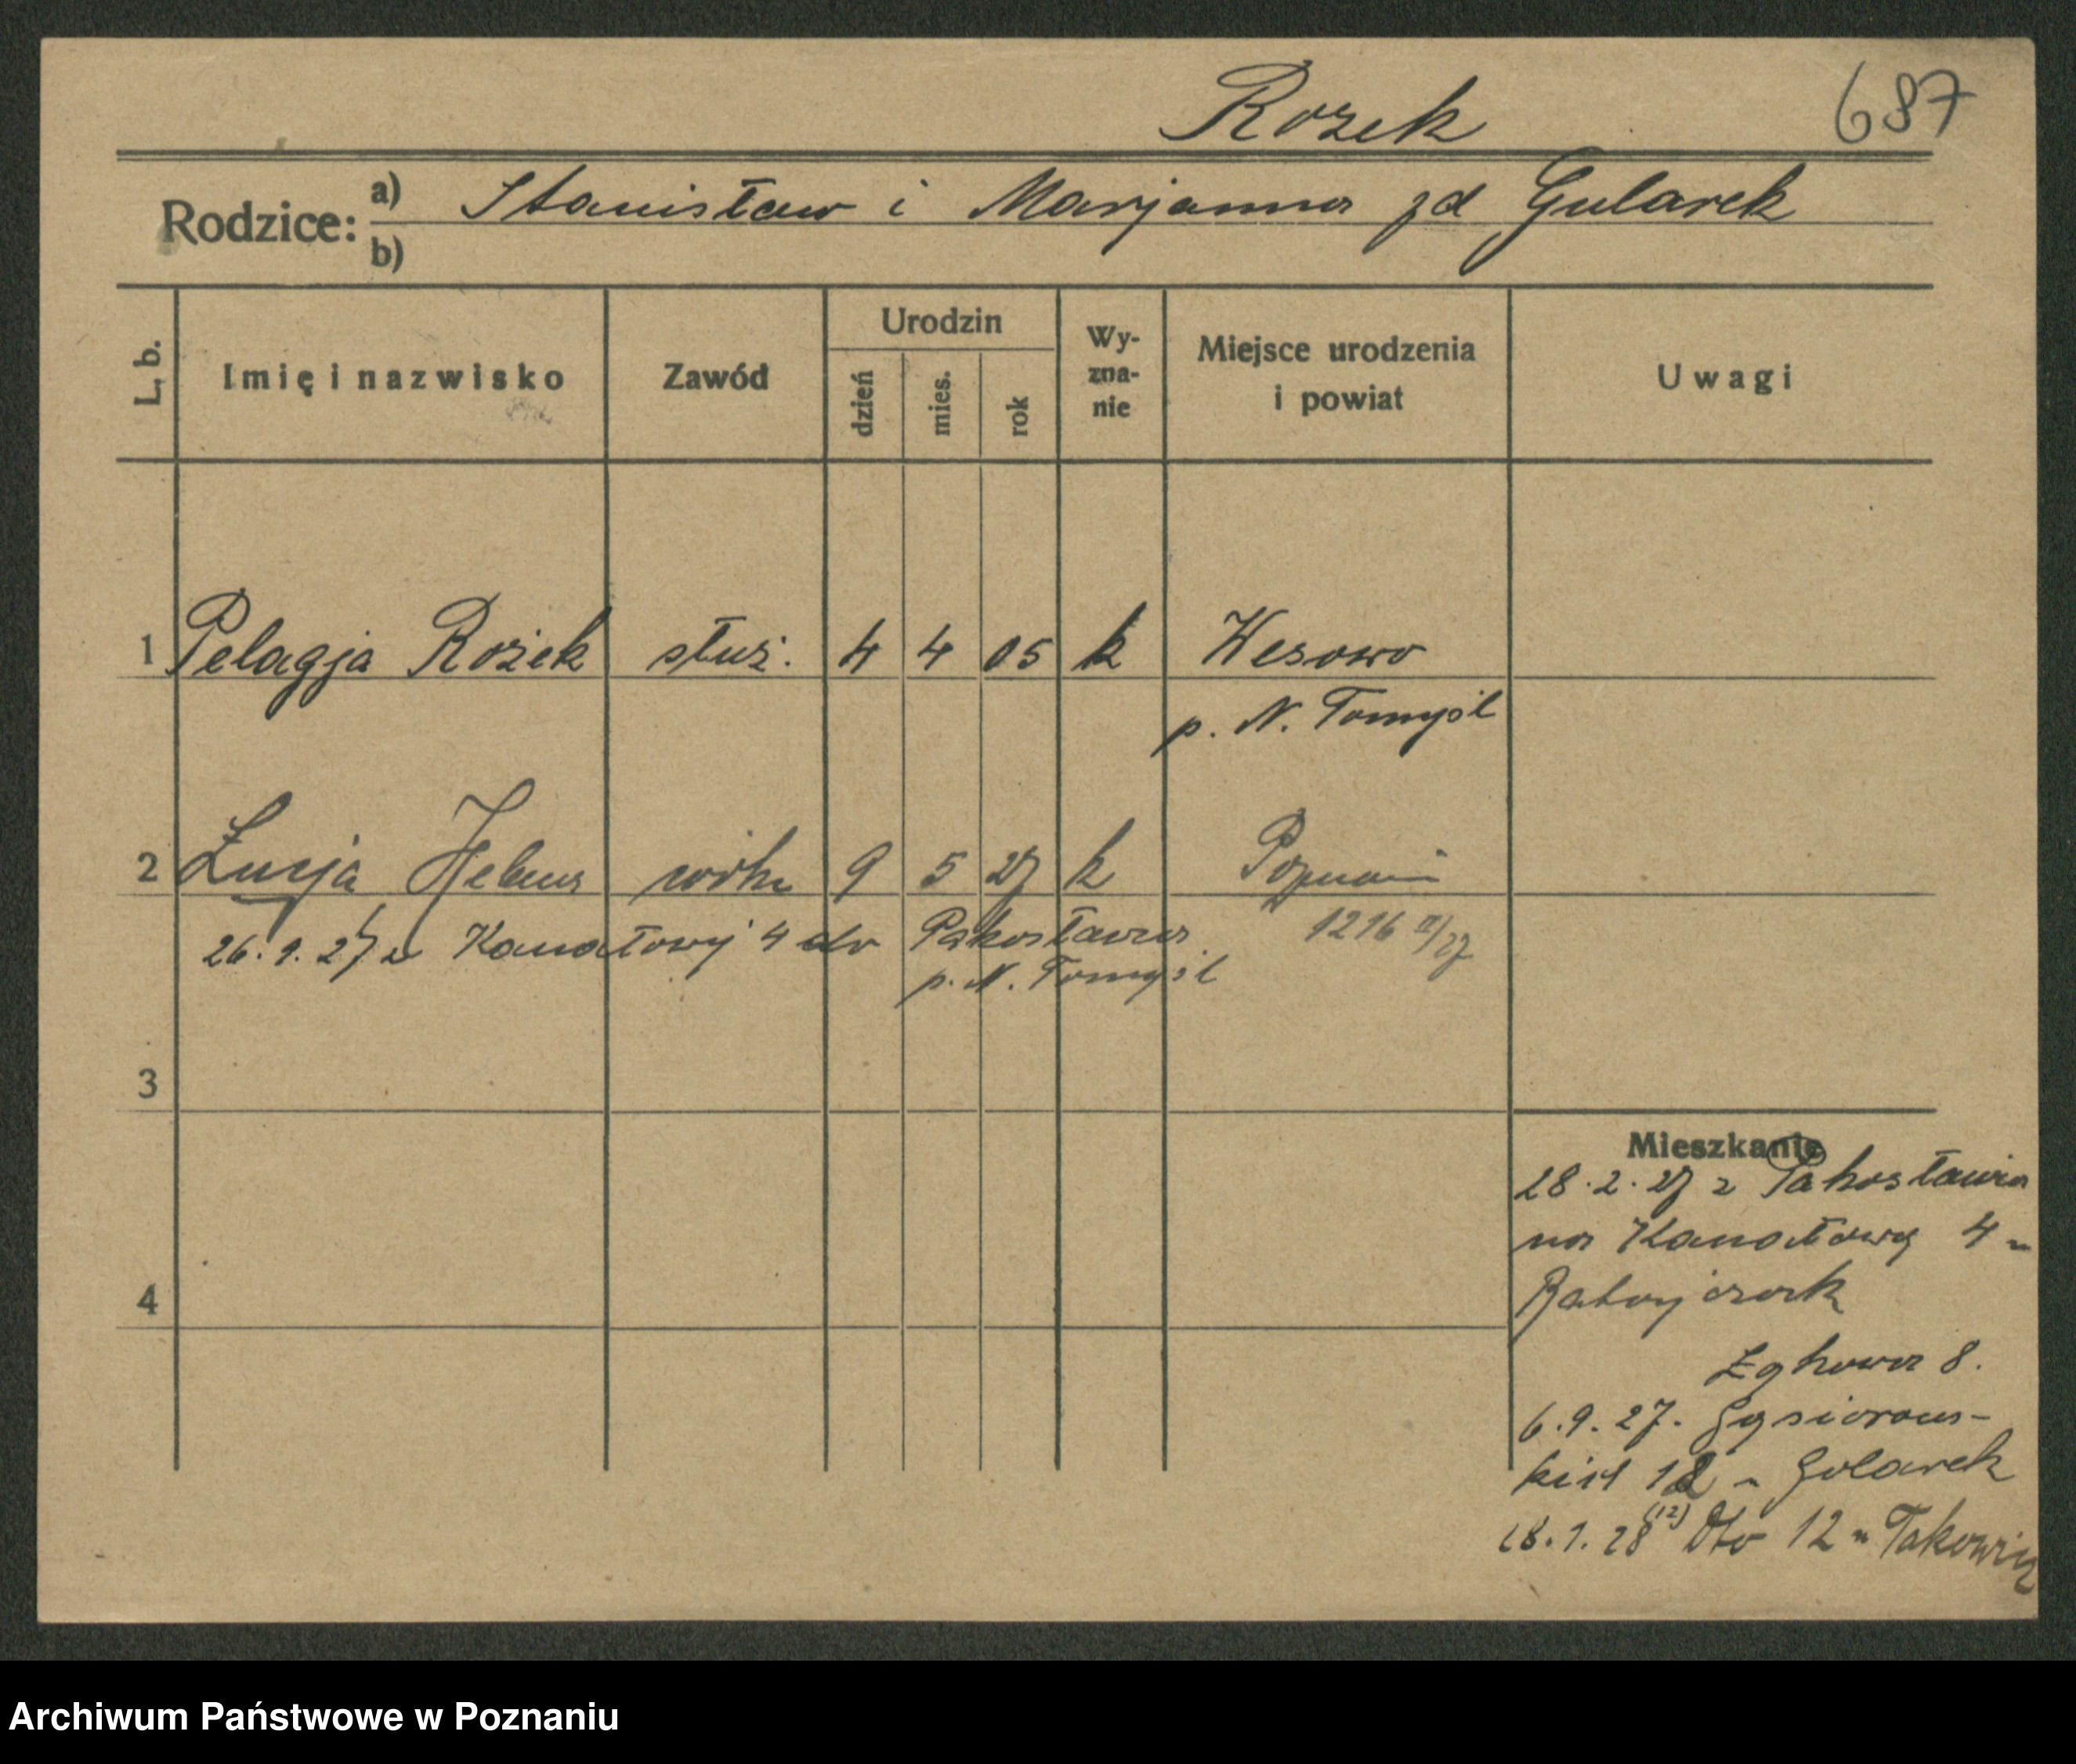 Rozek 687
Rodzice: a) Stanisław i Marjanna zd Gularek
b)
L. b. Imię i nazwisko Zawód Urodzin dzień mies. rok Wy-zna-nie Miejsce urodzenia i powiat Uwagi
1 Pelagja Rożek służ. 4 4 05 k Wesowo
p. N. Tomyśl
2 Łucja Helena córka 9 5 27 k Poznań
26.9.27 z Kanałowej 4 do Pakosławia 1216 II/27
p. N. Tomyśl
3
4
Mieszkanie
28.2.27 z Pakosławia
na Kanałową 4 u
Ratajczak
Łąkowa 8.
6.9.27. Gąsiorows-
kich 12 u Golarek
(12)
18.1.28 Oto 12 u
Archiwum Państwowe w Poznaniu